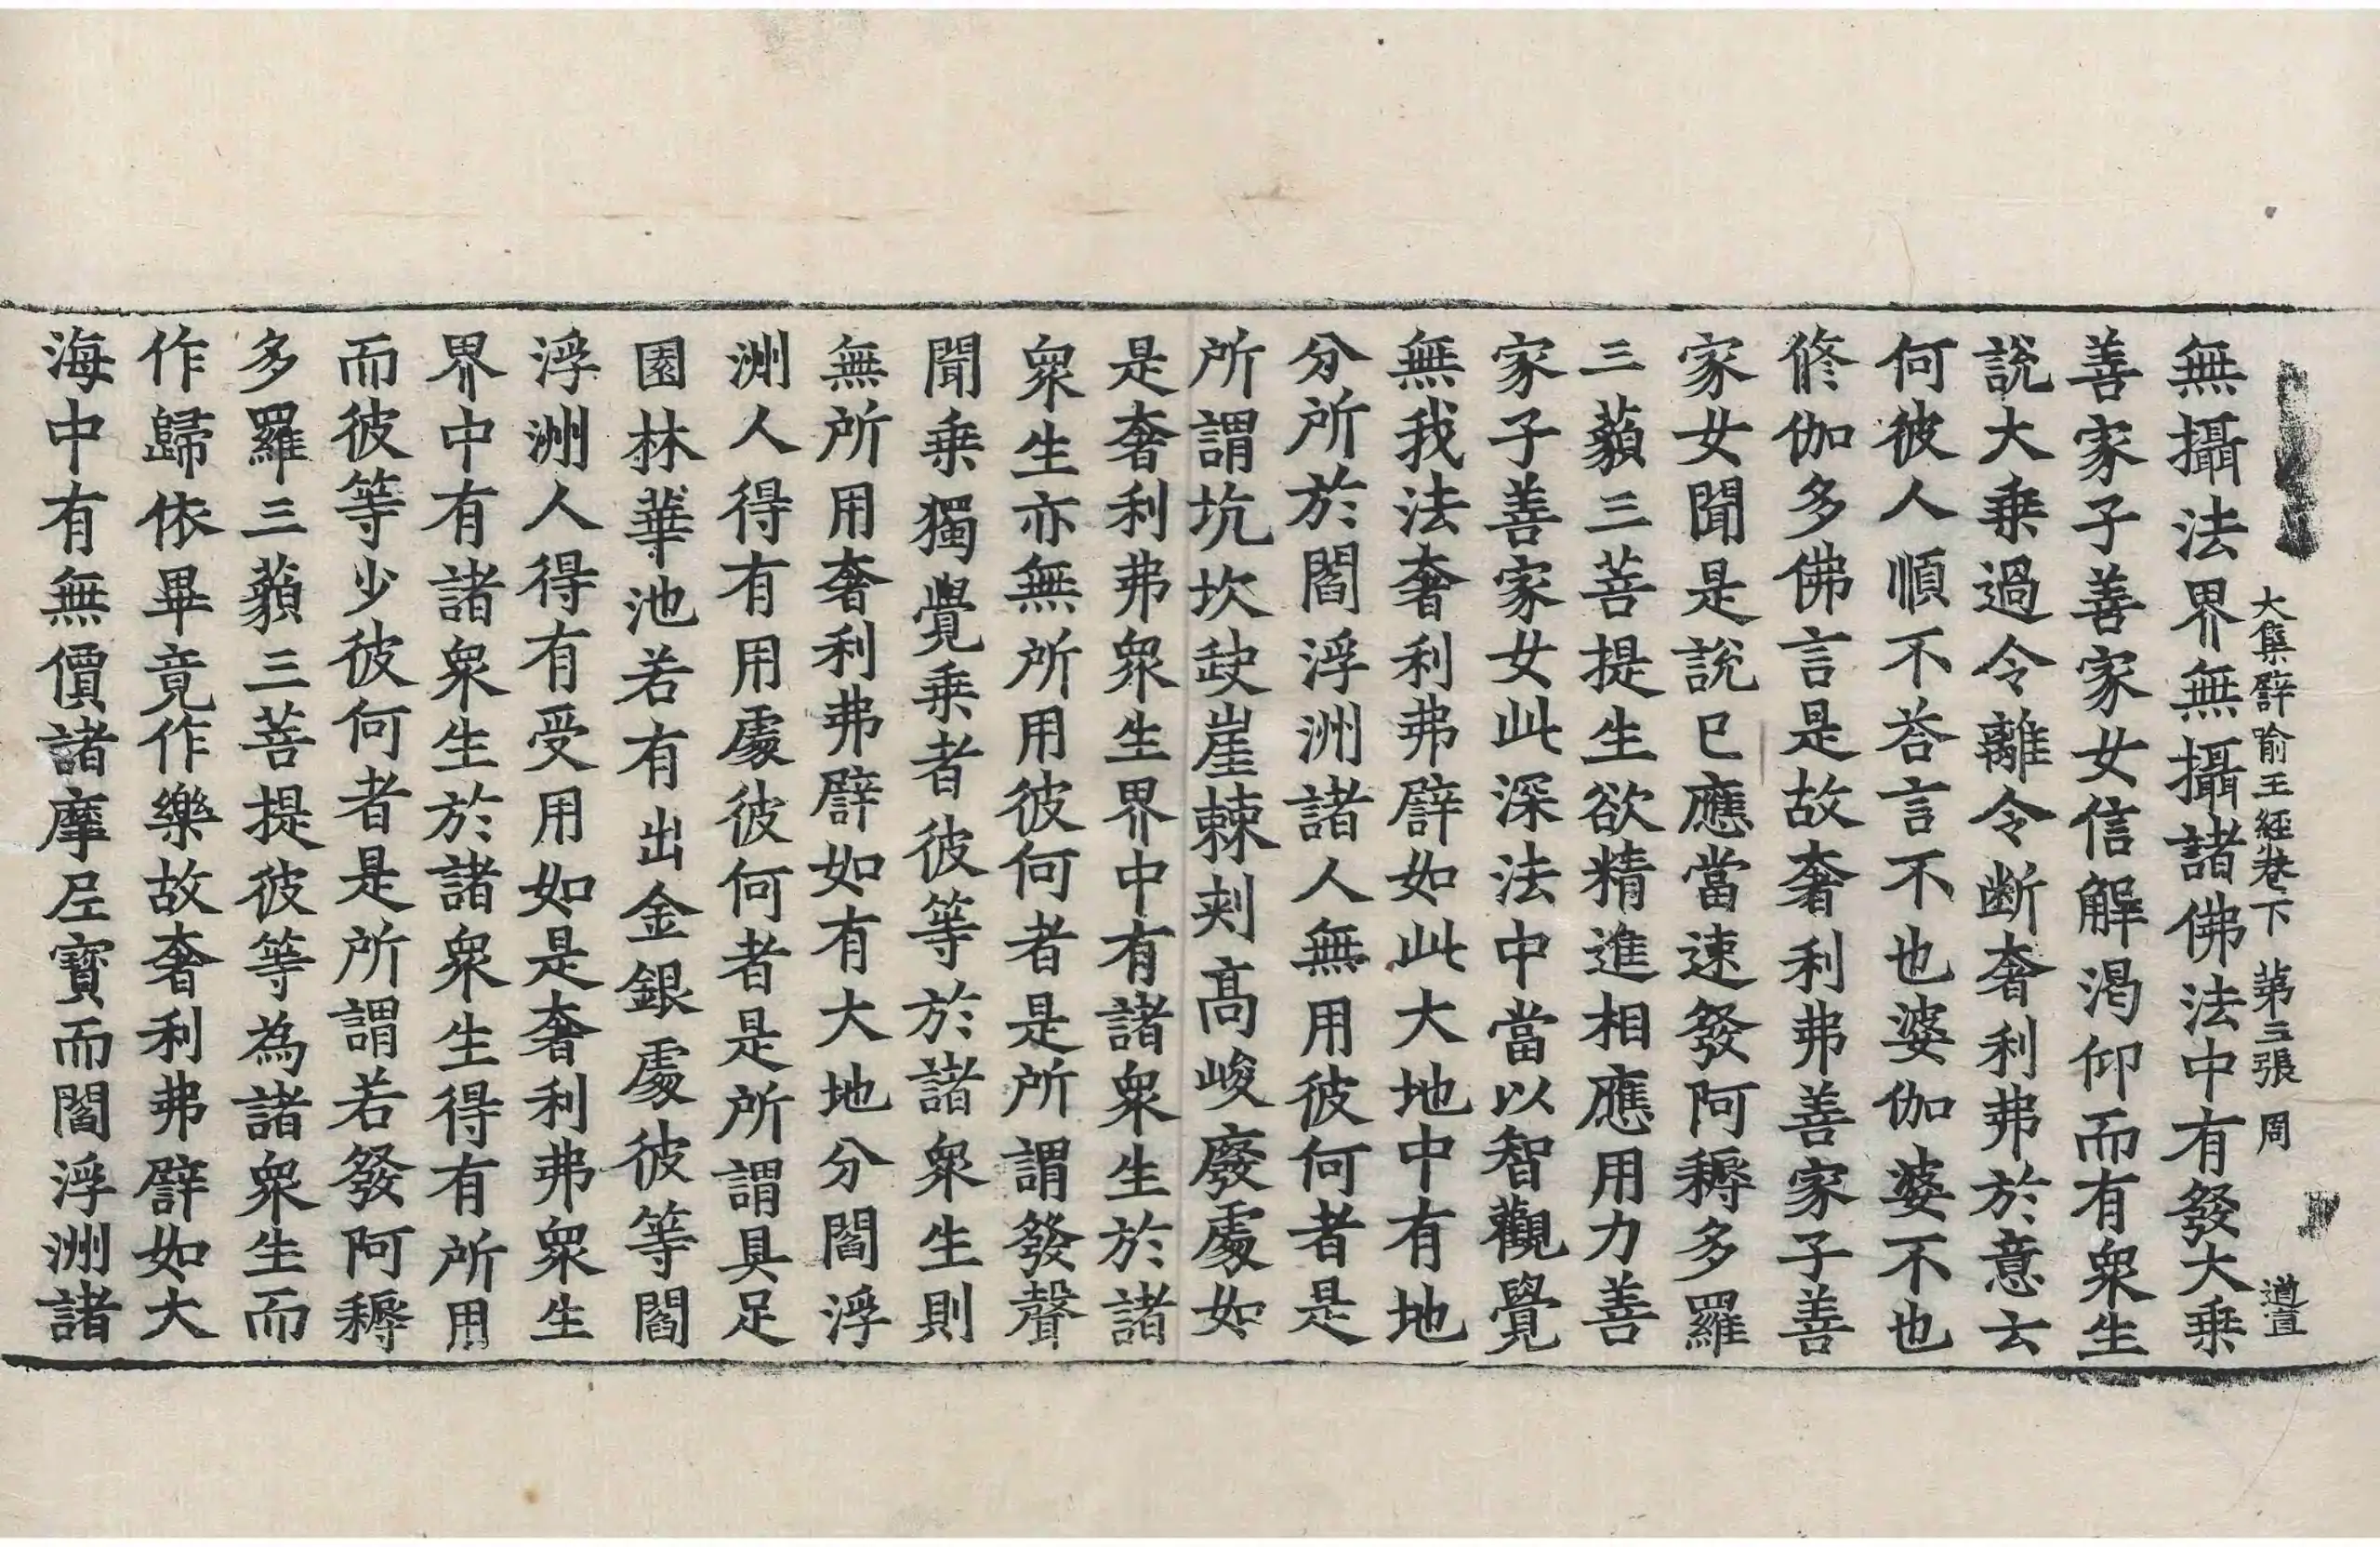 大集譬喻王經卷下　第三張　周　遵直
無攝法界無攝諸佛法中有發大乘
善家子善家女信解渴仰而有衆生
說大乘過令離令断奢利弗於意云
何彼人順不荅言不也婆伽婆不也
脩伽多佛言是故奢利弗善家子善
家女聞是說已應當速發阿耨多羅
三藐三菩提生欲精進相應用力善
家子善家女此深法中當以智觀覺
無我法奢利弗譬如此大地中有地
分所於閻浮洲諸人無用彼何者是
所謂坑坎崖棘刾髙峻廢處如
是奢利弗衆生界中有諸衆生於諸
衆生亦無所用彼何者是所謂發聲
聞乘獨覺乘者彼等於諸衆生則
無所用奢利弗譬如有大地分閻浮
洲人得有用處彼何者是所謂具足
園林華池若有出金銀處彼等閻
浮洲人得有受用如是奢利弗衆生
界中有諸衆生於諸衆生得有所用
而彼等少彼何者是所謂若發阿耨
多羅三藐三菩提彼等為諸衆生而
作歸依畢竟作樂故奢利弗譬如大
海中有無價諸摩尼寶而閻浮洲諸